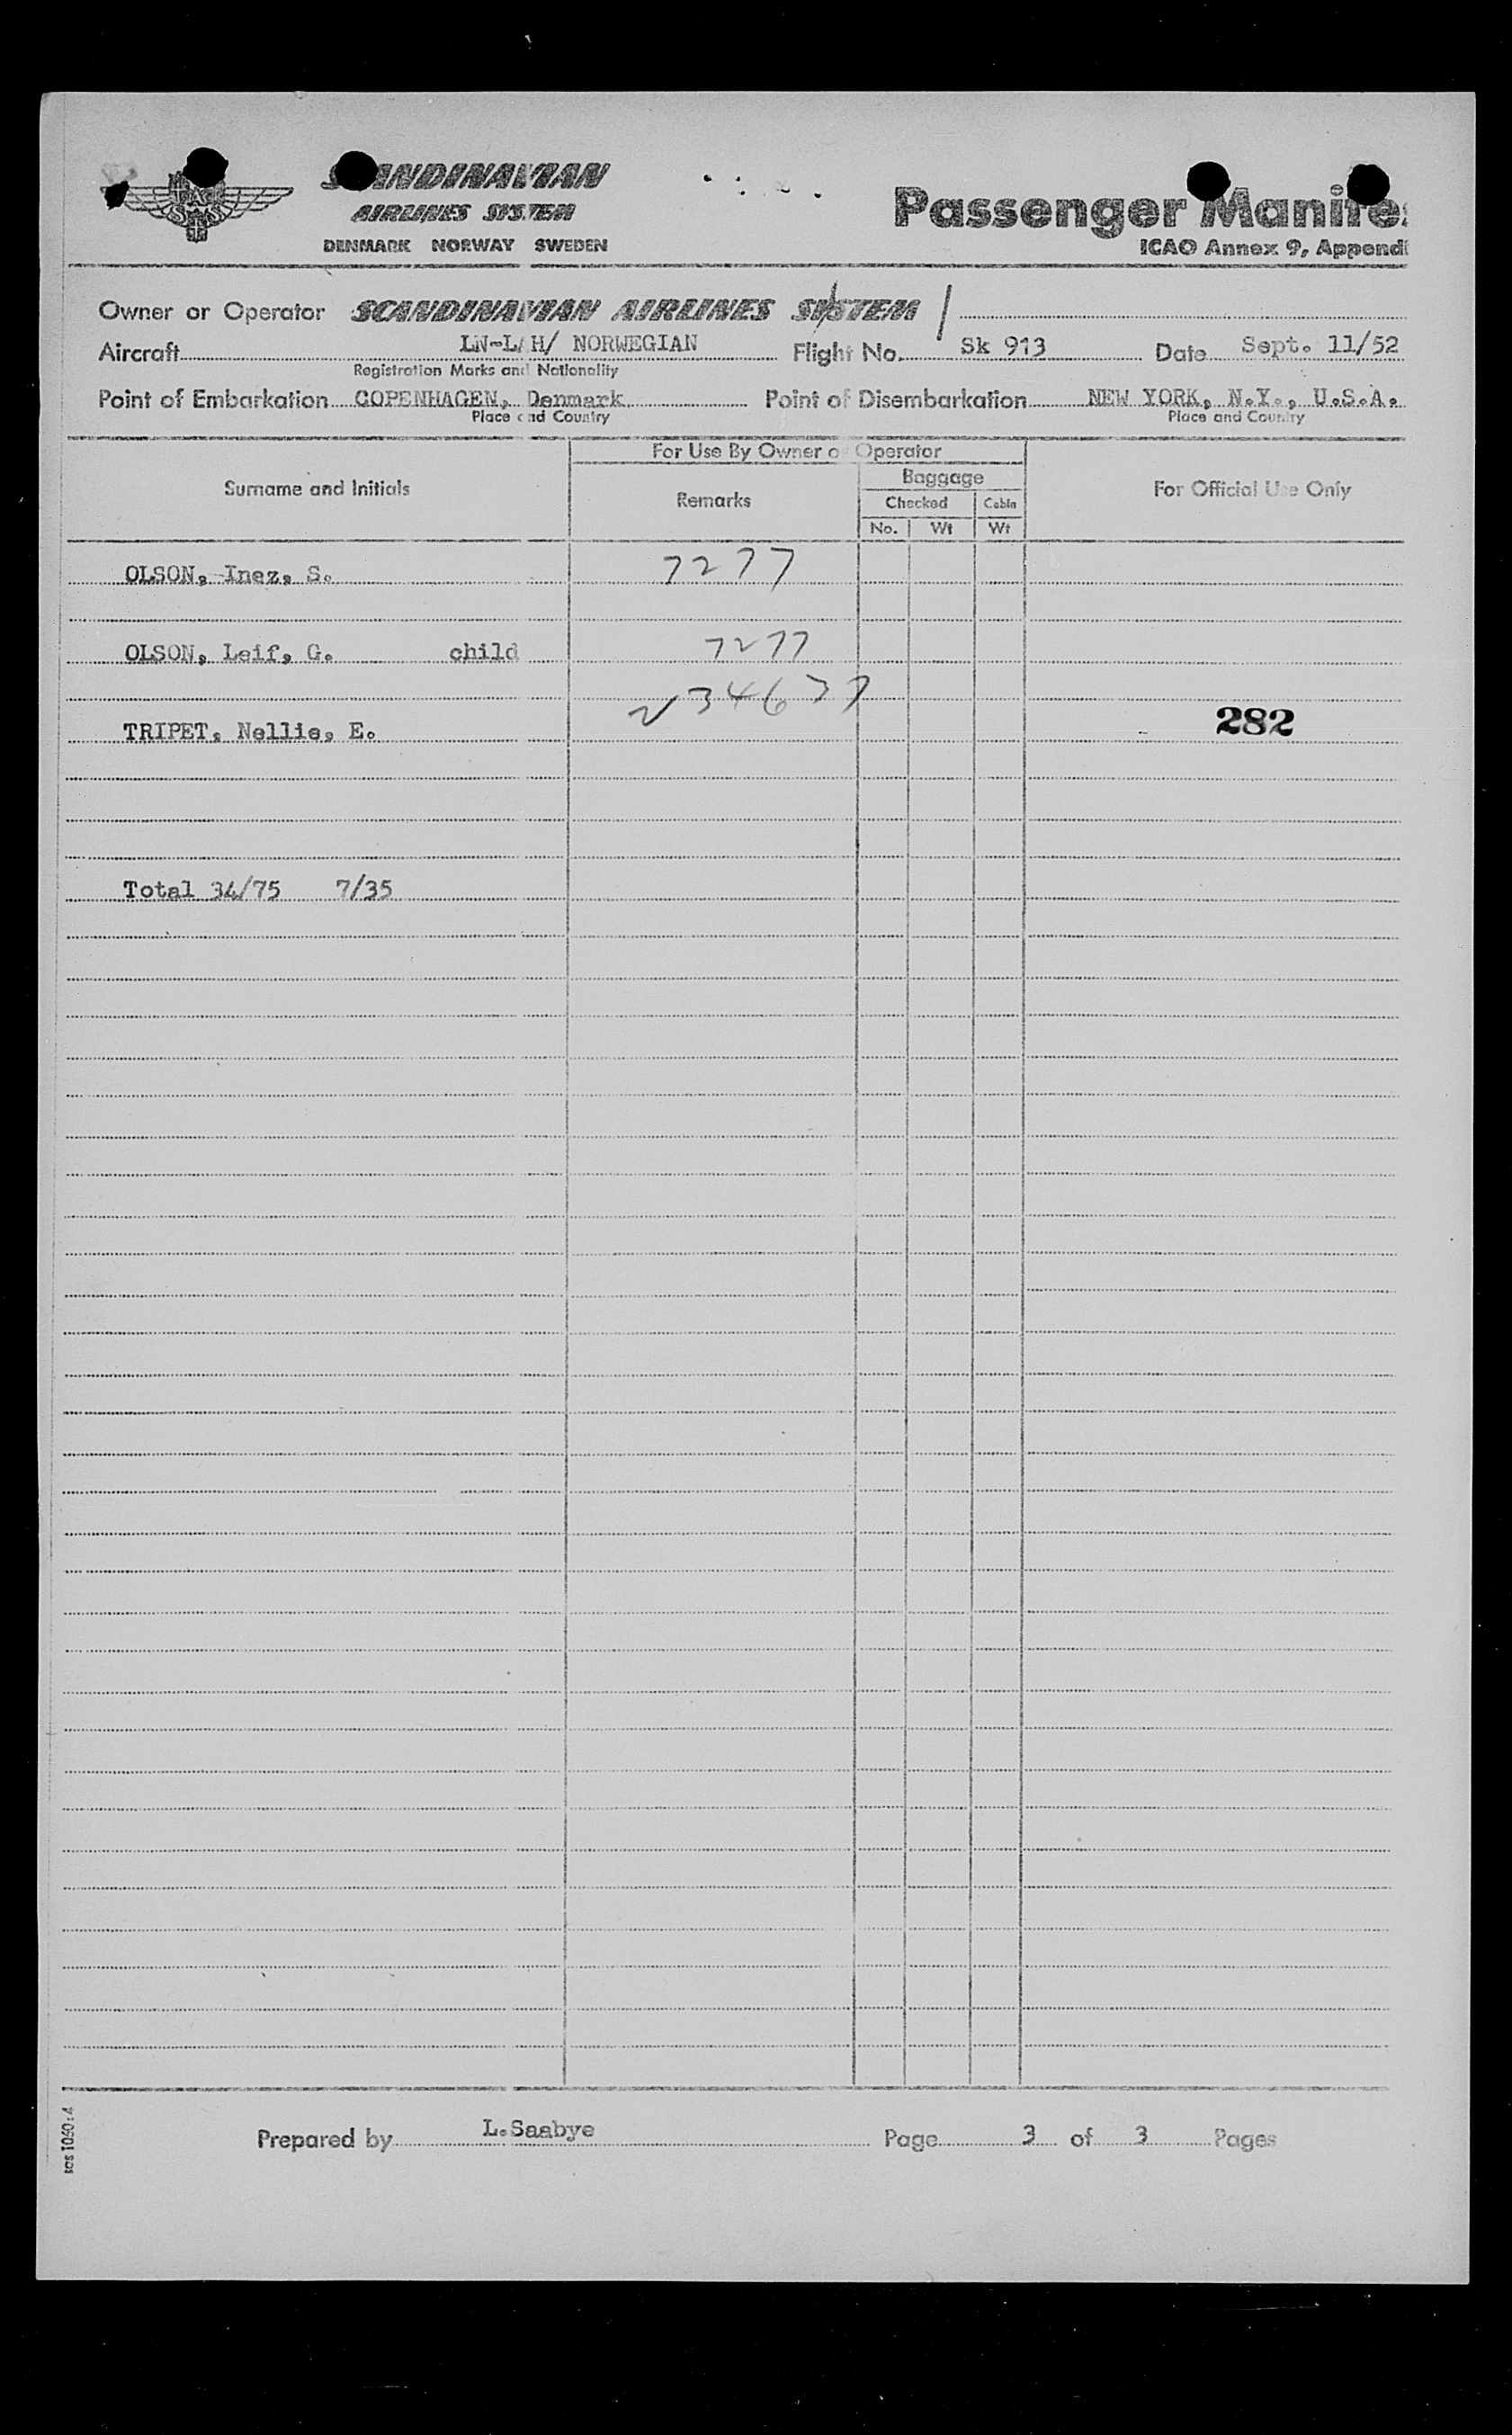 SAS
SCANDINAVIAN
AIRLINES SYSTEM
DENMARK NORWAY SWEDEN
Passenger Manifes
ICAO Annex 9, Appendi
Owner or Operator SCANDINAVIAN AIRLINES SYSTEM
Aircraft LN-LAH/ NORWEGIAN Flight No. Sk 913 Date Sept. 11/52
Registration Marks and Nationality
Point of Embarkation COPENHAGEN, Denmark Point of Disembarkation NEW YORK, N.Y., U.S.A.
Place and Country Place and Country
For Use By Owner or Operator
Surname and Initials Remarks Baggage For Official Use Only
Checked Cabin
No. Wt Wt
OLSON, Inez, S. 7277
OLSON, Leif, G. child 7277
234637
TRIPET, Nellie, E. 282
Total 34/75 7/35
Prepared by L.Saabye Page 3 of 3 Pages
sas 1060:4